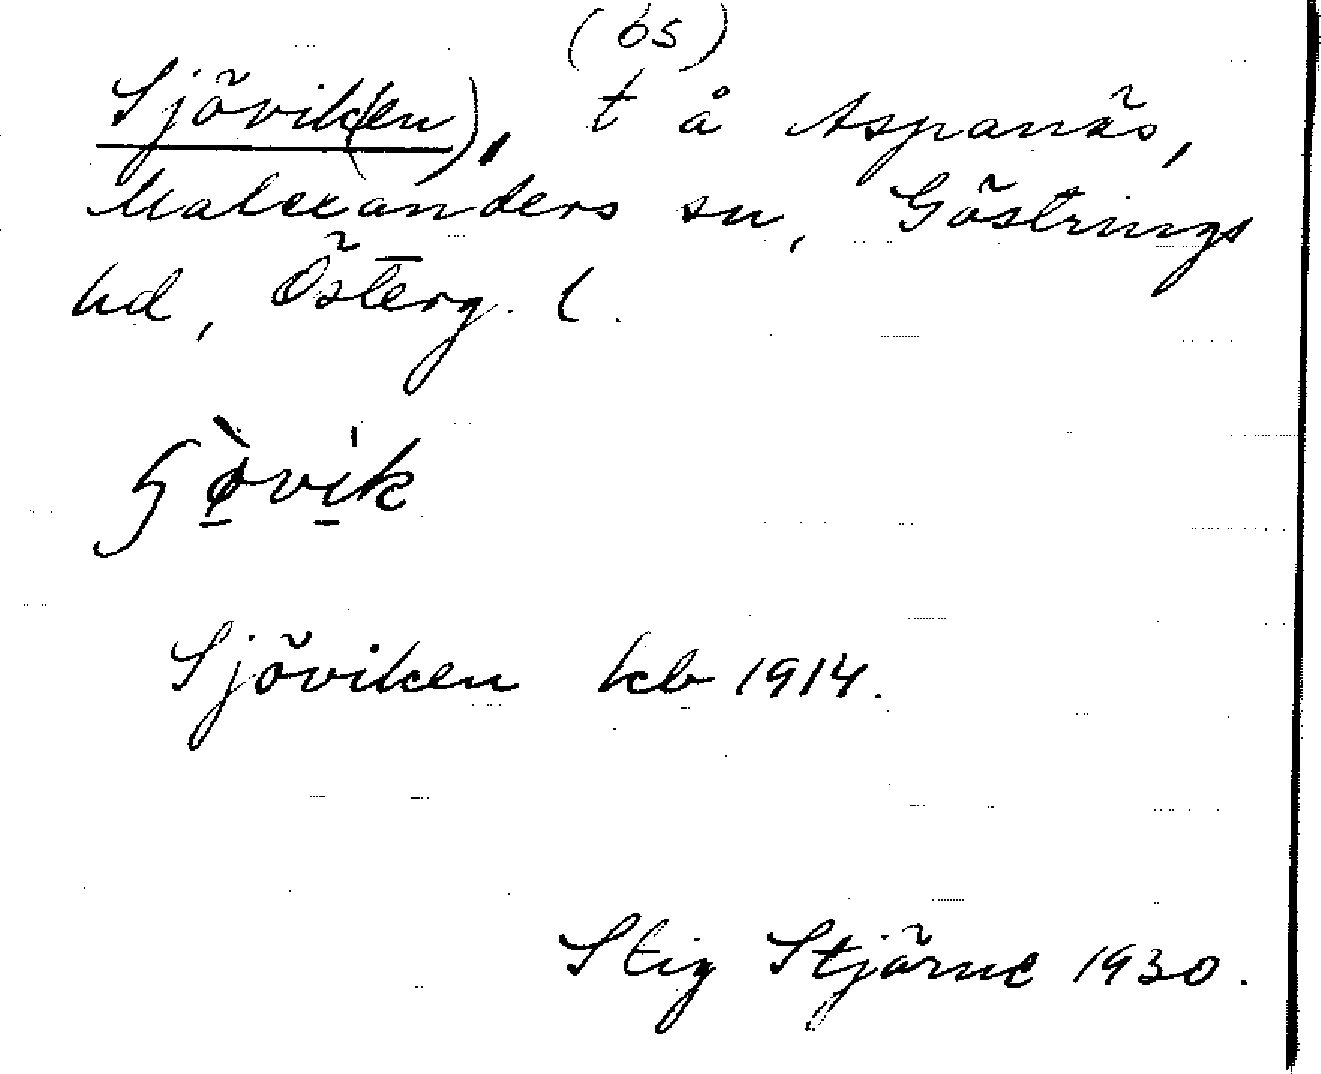 (bs)
Sjövik(en), t å Aspanäs,
Malexanders sn, Göstrings
hd, Österg. l.
ʃø̀vi̍k
Sjöviken kb 1914.
Stig Stjärne 1930.